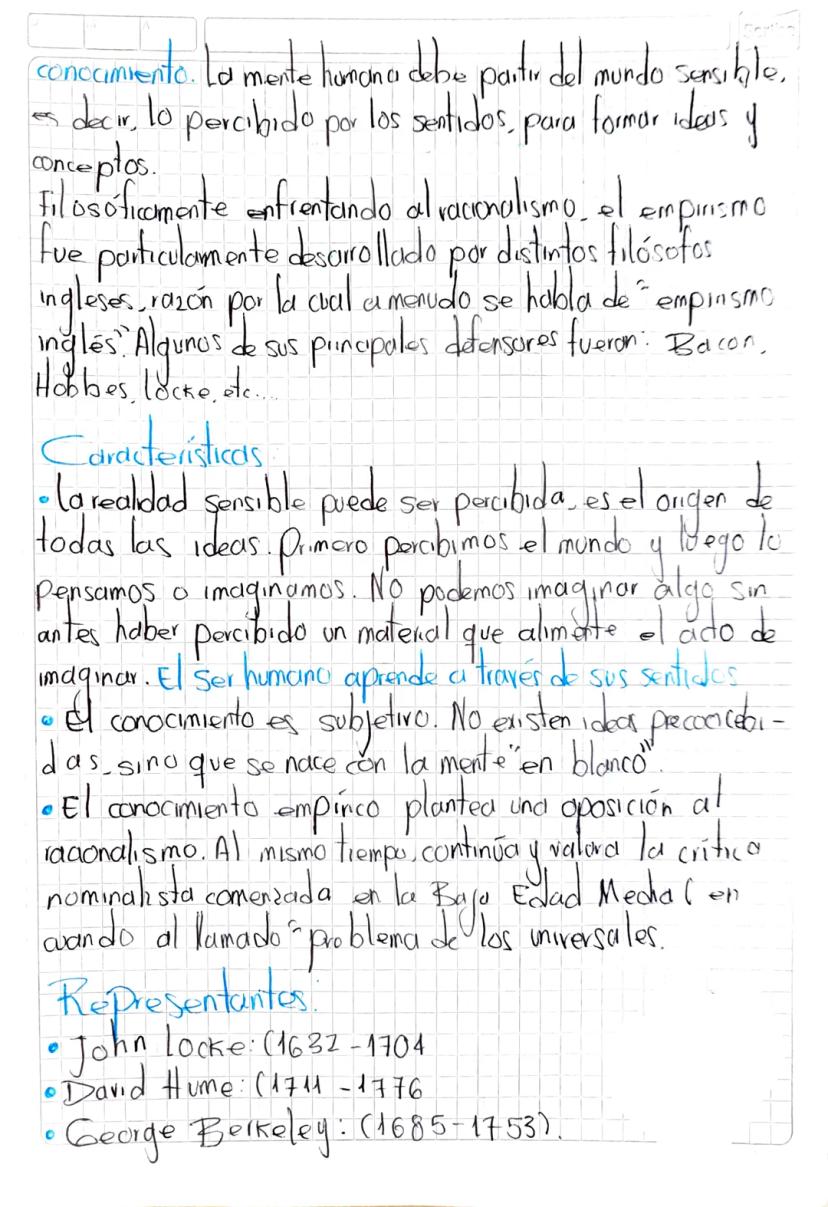 conocimiento. La mente humana debe partir del mundo sensible,
es decir, lo percibido por los sentidos, para formar ideas y
conceptos.
Filosóficamente enfrentando al racionalismo, el empirismo
fue particulamente desarrollado por distintos filósofos
ingleses, razón por la cual a menudo se habla de "empirismo
inglés". Algunos de sus principales defensores fueron: Bacon,
Hobbes, locke, etc...
Características
• La realidad sensible puede ser percibida, es el origen de
todas las ideas. Primero percibimos el mundo y luego lo
pensamos o imaginamos. No podemos imaginar algo sin
antes haber percibido un material que alimente el acto de
imaginar. El ser humano aprende a través de sus sentidos
• El conocimiento es subjetivo. No existen ideas preconcebi-
das, sino que se nace con la mente "en blanco".
• El conocimiento empírico plantea una oposición al
racionalismo. Al mismo tiempo, continúa y valora la crítica
nominalista comenzada en la Baja Edad Media (en
cuando al llamado "problema de los universales.
Representantes:
• John Locke: (1632 - 1704
• David Hume: (1711 - 1776
• George Berkeley: (1685-1753).